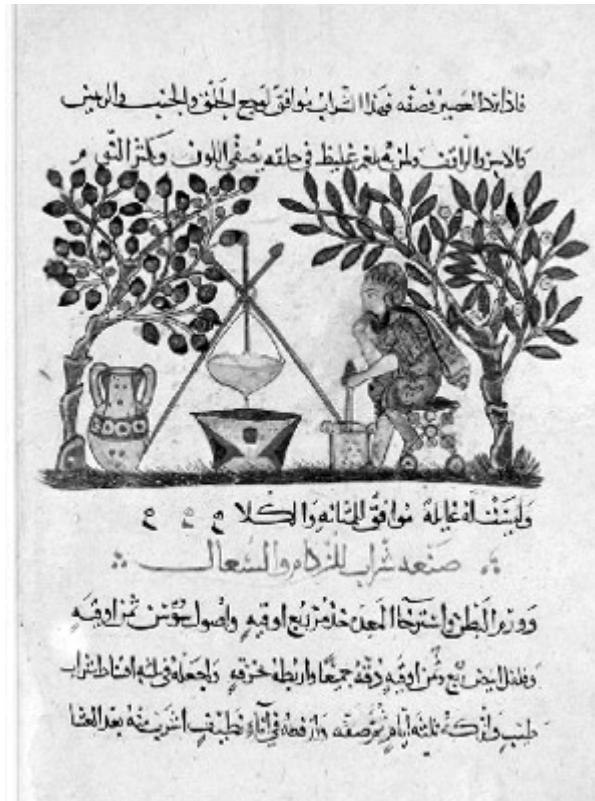 فاذا برد العصير فصفه فهذا الشراب موافق لوجع الحلق والجنب والريتين
والراقت ولمن به بلغم غليظ في حلقه يصفي اللون ويكثر النوم
وليست له غايلة موافق للمثانه والكلا
صنعه شراب للزكام والسعال
وورم البطن واسترخا المعدة خذ مر ربع اوقيه واصول سوسن ثمن اوقيه
وفلفل ابيض ربع وثمن اوقيه دقه جميعا واربطه بخرقه واجعله في ثلثه اقساط شراب
طيب واتركه ثلثه ايام ثم صفه وارفعه في اناء نظيف اشرب منه بعد العشا